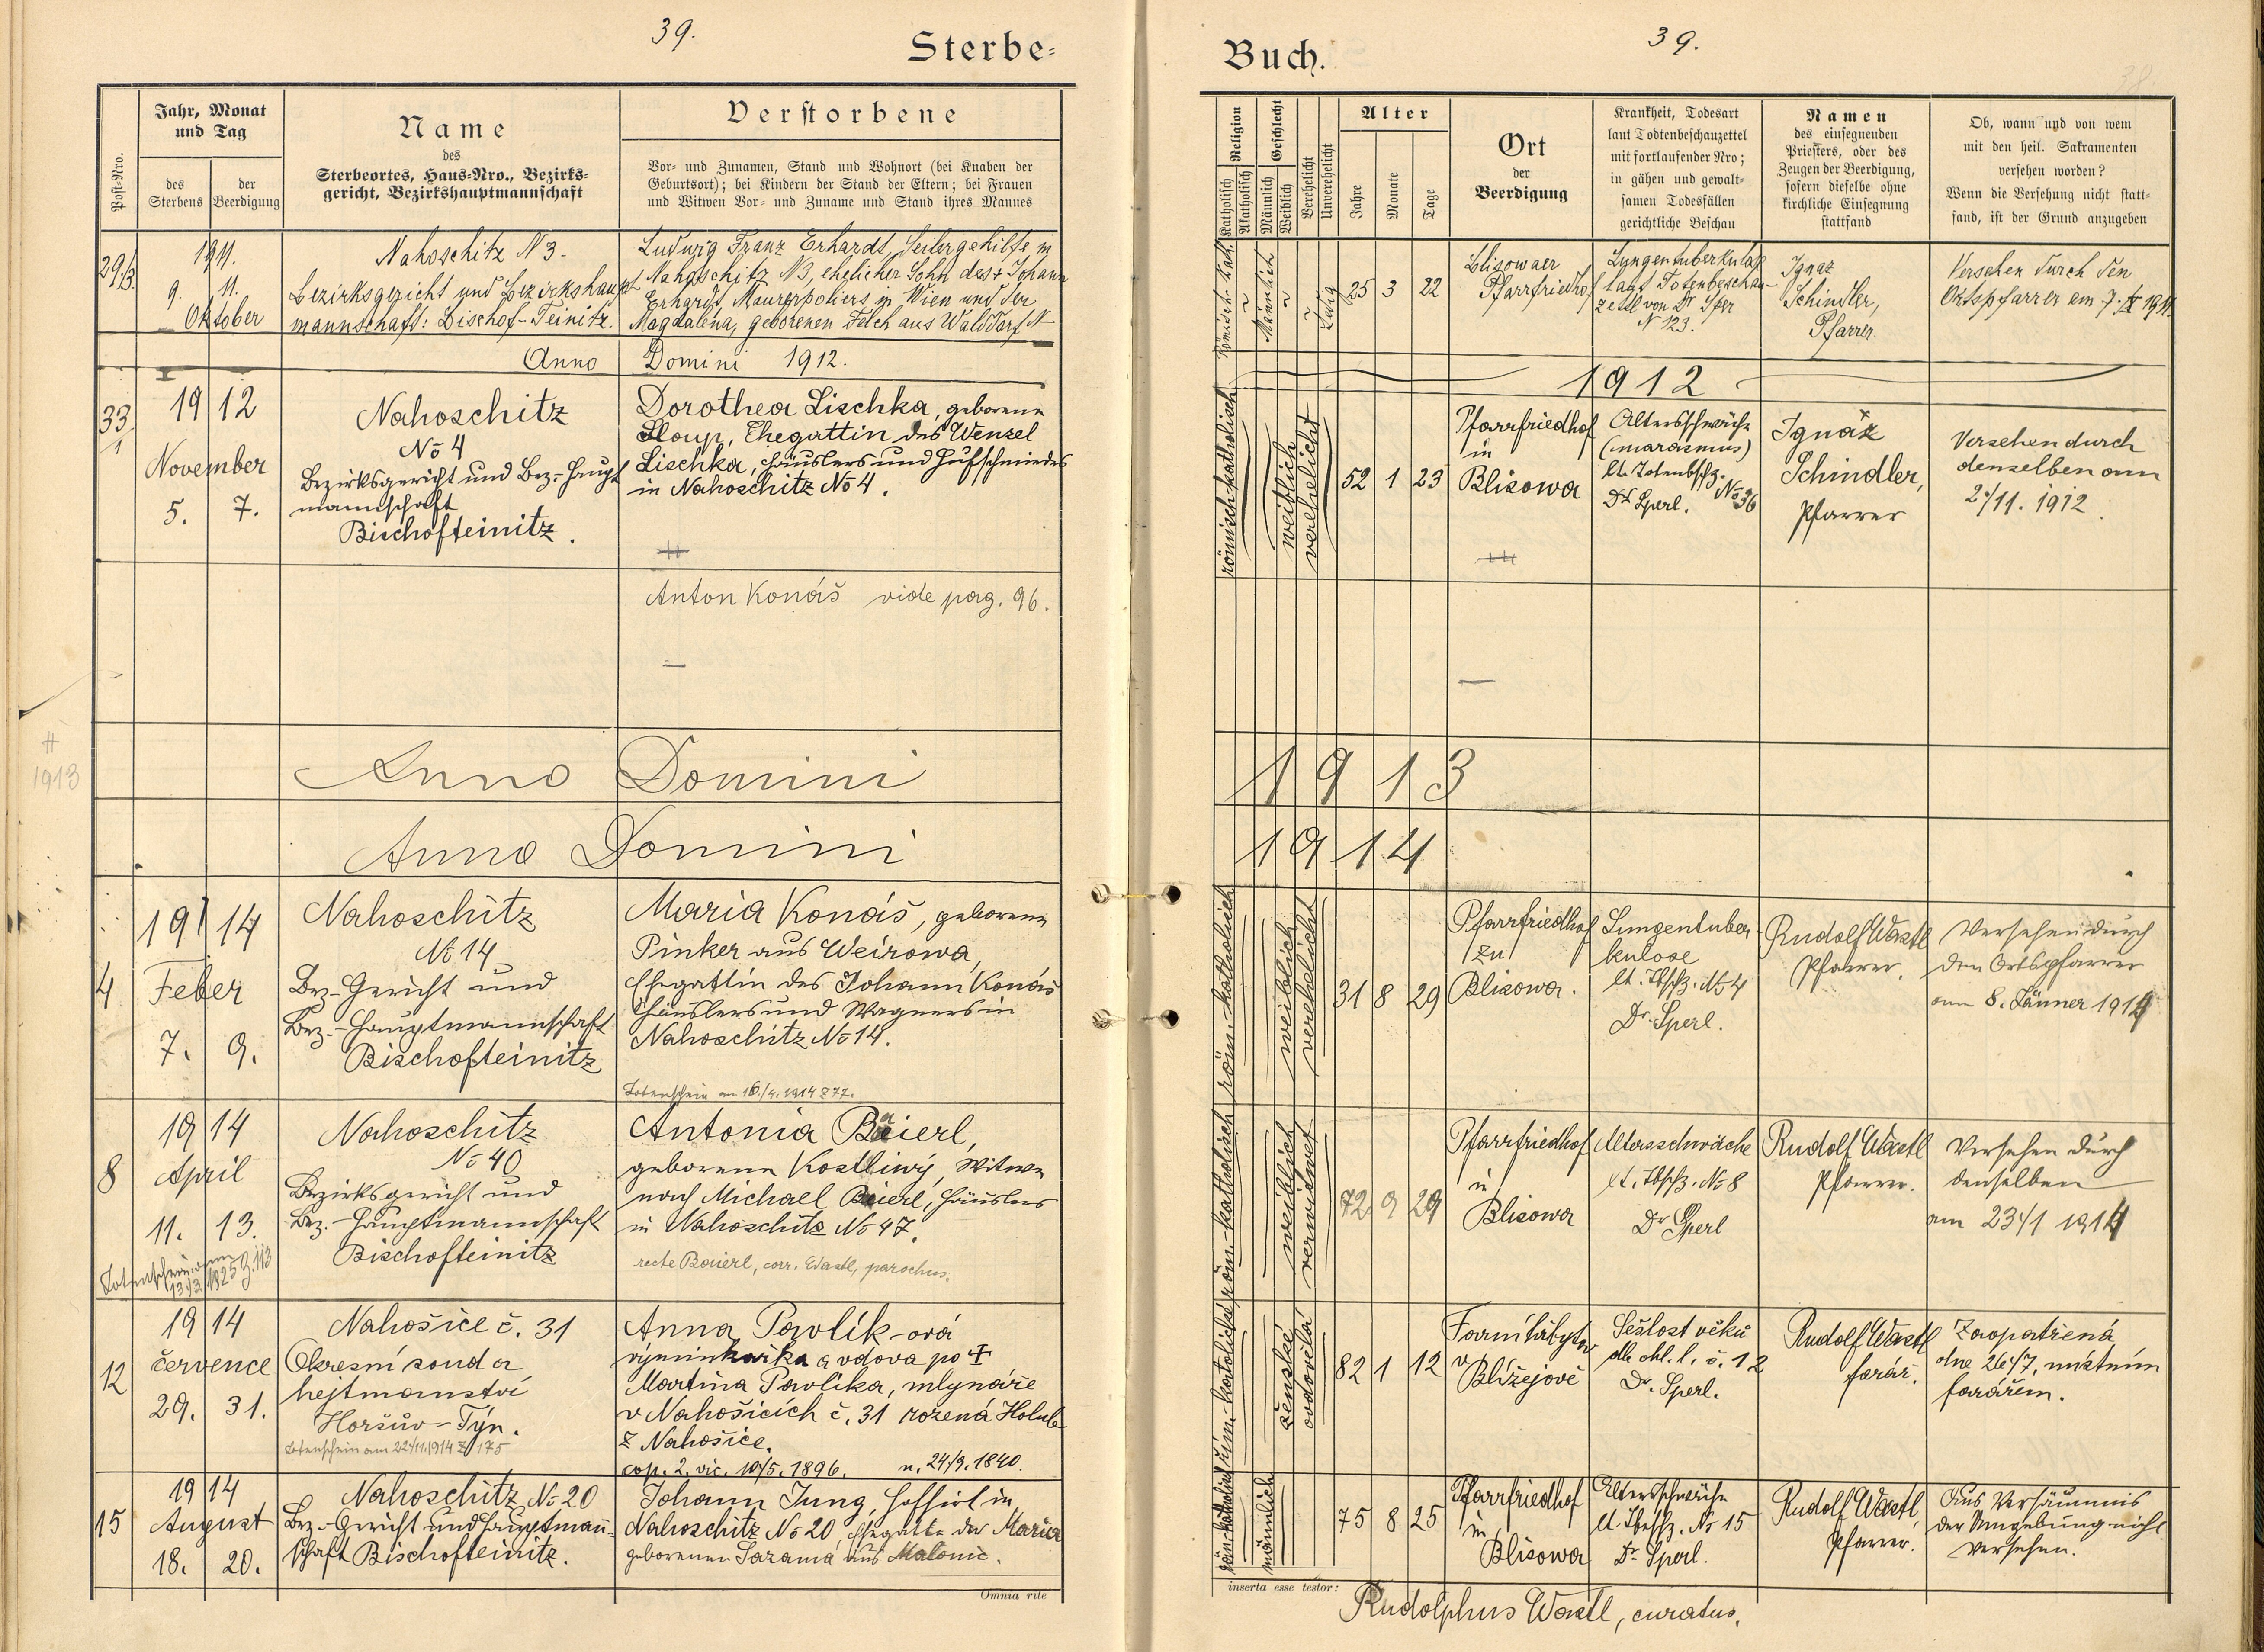 39.
Sterbe-
Post-Nro.
Jahr, Monat
und Tag
des
Sterbens
der
Beerdigung
Name
des
Sterbeortes, Haus-Nro., Bezirks-
gericht, Bezirkshauptmannschaft
Verstorbene
Vor- und Zunamen, Stand und Wohnort (bei Knaben der
Geburtsort); bei Kindern der Stand der Eltern; bei Frauen
und Witwen Vor- und Zuname und Stand ihres Mannes
1911.
9. 11.
Oktober
Nahoschitz N 3.
Bezirksgericht und Bezirkshaupt
mannschaft: Bischof-Teinitz.
Ludwig Franz Erhardt, Seilergehilfe in
Nahoschitz N3, ehelicher Sohn des + Johann
Erhardt, Maurerpoliers in Wien und der
Magdalena, geborenen Felch aus Walddorf N-
Anno Domini 1912.
33
1
19 12
November
5. 7.
Nahoschitz
No 4
Bezirksgericht und Bez.-Haupt
mannschaft
Bischofteinitz.
Dorothea Lischka, geborene
Sloup, Ehegattin des Wenzel
Lischka, Häuslers und Hufschmiedes
in Nahoschitz No 4.
Anton Konáš vide pag. 96.
#
1913
Anno Domini
Anno Domini
4
19 14
Feber
7. 9.
Nahoschitz
No 14
Bez.-Gericht und
Bez.-Hauptmannschaft
Bischofteinitz
Maria Konáš, geborene
Pinker aus Weirowa,
Ehegattin des Johann Konáš
Häuslers und Wagners in
Nahoschitz No 14.
Totenschein am 16./4. 1914 Z 77.
8
19 14
April
11. 13.
Totenschein am
13/3. 1925 Z. 113
Nahoschitz
No 40
Bezirksgericht und
Bez.-Hauptmannschaft
Bischofteinitz
Antonia Baierl,
geborene Kostliwý, Witwe
nach Michael Baierl, Häuslers
in Nahoschitz No 47.
recte Baierl, corr. Wastl, parochus.
12
19 14
července
29. 31.
Nahošice č. 31
Okresní soud a
hejtmanství
Horšův-Týn.
Totenschein am 22/11. 1914 Z 175
Anna Pavlík-ová
výminkářka a vdova po +
Martina Pavlíka, mlynáře
v Nahošicích č. 31 rozená Holub
z Nahošice.
cop. 2. vic. 10/5. 1896. n. 24/9. 1840.
15
19 14
August
18. 20.
Nahoschitz No 20
Bez.-Gericht und Hauptmann-
schaft Bischofteinitz.
Johann Jung, in
Nahoschitz No 20, Ehegatte der Maria
geborenen Sarama aus Malonic.
Omnia rite
39.
Buch.
Religion
Katholisch
Akatholisch
Geschlecht
Männlich
Weiblich
Verehelicht
Unverehelicht
Alter
Jahre
Monate
Tage
Ort
der
Beerdigung
Krankheit, Todesart
laut Todtenbeschauzettel
mit fortlaufender Nro;
in gähen und gewalt-
samen Todesfällen
gerichtliche Beschau
Namen
des einsegnenden
Priesters, oder des
Zeugen der Beerdigung,
sofern dieselbe ohne
kirchliche Einsegnung
stattfand
Ob, wann und von wem
mit den heil. Sakramenten
versehen worden?
Wenn die Versehung nicht statt-
fand, ist der Grund anzugeben
Römisch Kath.
Männlich
Ledig
25 3 22
Blisowaer
Pfarrfriedhof
Lungentuberkulose
laut Totenbeschau-
zettel von Dr Sper
N 123.
Ignaz
Schindler,
Pfarrer.
Versehen durch den
Ortspfarrer am 7. IX 1911.
1912
römisch-katholisch
weiblich
verehelicht
52 1 23
Pfarrfriedhof
in
Blisowa
Altersschwäche
(marasmus)
lt. Totenbschz.
Dr Sperl. No 36
Ignaz
Schindler,
Pfarrer
Versehen durch
denselben am
2/11. 1912.
1913
1914
röm. katholisch
weiblich
verehelicht
31 8 29
Pfarrfriedhof
zu
Blisowa.
Lungentuber-
kulose
lt. Tbschz. No 4
Dr. Sperl.
Rudolf Wastl
Pfarrer.
Versehen durch
den Ortspfarrer
am 8. Jänner 1914
röm.-katholisch
weiblich
verwitwet
72 9 29
Pfarrfriedhof
in
Blisowa
Altersschwäche
lt. Tbschz. No 8
Dr Sperl
Rudolf Wastl
Pfarrer.
Versehen durch
denselben
am 23/1 1914
řím.-katolické
ženské
ovdovělá
82 1 12
Farní hřbytov
v
Blížejově
Sešlost věku
dle ohl. l. č. 12
Dr. Sperl.
Rudolf Wastl
farář.
Zaopatřená
dne 26/7. místním
farářem.
röm. katholisch
männlich
75 8 25
Pfarrfriedhof
in
Blisowa
Altersschwäche
lt. Tbschz. No 15
Dr. Sperl.
Rudolf Wastl,
Pfarrer.
Aus Versäumnis
der Umgebung nicht
versehen.
inserta esse testor:
Rudolphus Wastl, curatus.